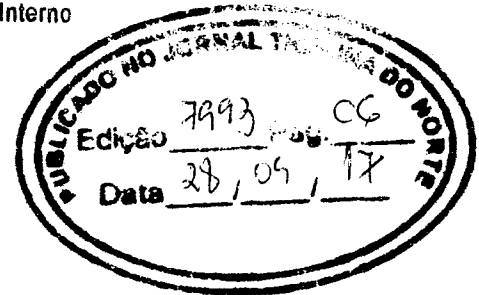 Interno
PUBLICADO NO JORNAL TRIBUNA DO NORTE
Edição 7993 Pag. C6
Data 28, 04, 17